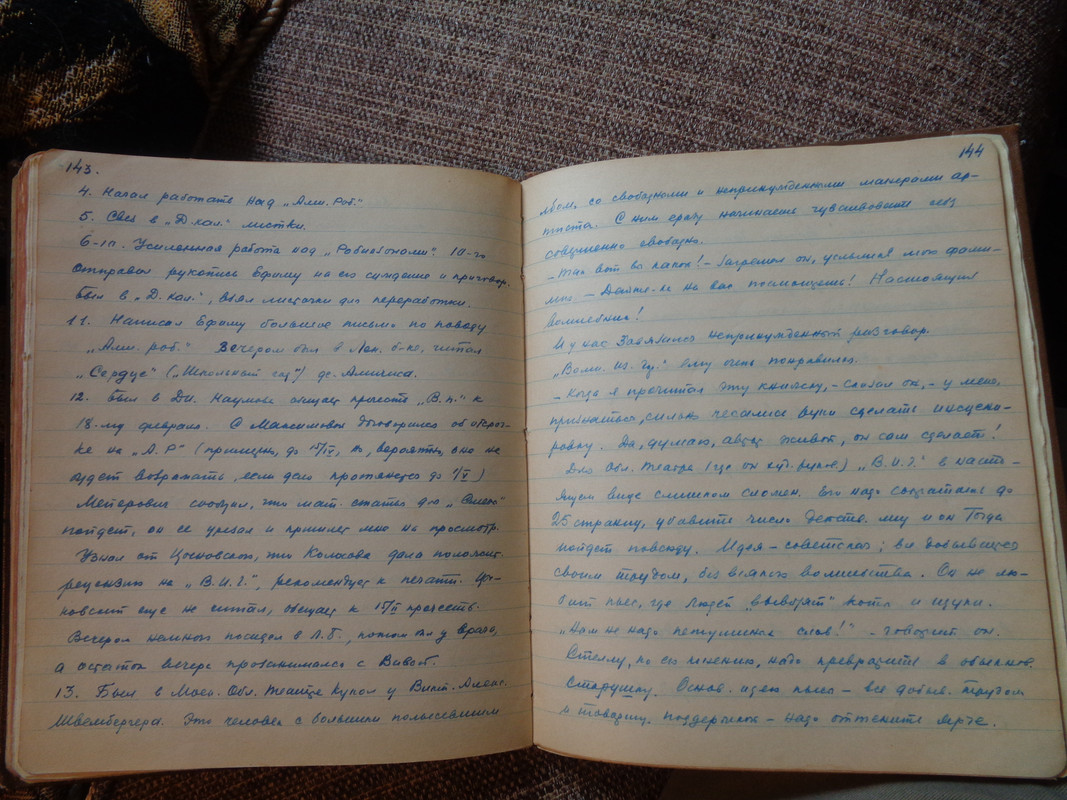 143.
4. Начал работать над „Алт. роб."
5. Свез в „Д. кал." листки.
6-10. Усиленная работа над „Рабнабоками". 10-го
отправил рукопись Ефиму на его суждение и приговор.
Был в „Д. кал.", взял листочки для переработки.
11. Написал Ефиму большое письмо по поводу
„Алт. роб." Вечером был в Лен. б-ке, читал
„Сердце" („Школьный год") де-Амичиса.
12. Был в Ди. Наумова обещает прочесть „В. п." к
18-му февраля. С Максимовой договорился об отсроч-
ке на „А. Р" (принципе, до 15/IV, но, вероятно, она не
будет возражать, если дело протянется до 1/V)
Мейерович сообщил, что мат. статья для
пойдет, он ее урезал и пришлет мне на просмотр.
Узнал от Цейновского, что Колахова дала положит.
рецензию на „В. И. Г.", рекомендует к печати. Цей-
новский еще не читал, обещает к 15/II прочесть.
Вечером немного посидел в Л. Б., потом был у врача,
а остаток вечера прозанимался с Вивой.
13. Был в Моск. Обл. Театре Кукол у Викт. Алекс.
Швембергера. Это человек с большим полысевшим
144
лбом, со свободными и непринужденными манерами ар-
тиста. С ним сразу начинаешь чувствовать себя
совершенно свободно.
– Так вот вы какой! – загремел он, услышав мою фами-
лию – Дайте-ка на вас посмотреть! Настоящий
волшебник!
И у нас завязался непринужденный разговор.
„Волш. Из. Гу." ему очень понравился.
– Когда я прочитал эту книжку, – сказал он, – у меня,
признаться, сильно чесались руки сделать инсцени-
ровку. Да, думаю, автор живой, он сам сделает!
Для Обл. театра (где он худ. руков.) „В. И. Г." в насто-
ящем виде слишком сложен. Его надо сократить до
25 страниц, убавить число действ. лиц и он тогда
пойдет повсюду. Идея – советская: все добывается
своим трудом, без всякого волшебства. Он не лю-
бит пьес, где людей „вывозят" коты и щуки.
„Нам не надо петушиных слов!" – говорит он.
Стеллу, по его мнению, надо превратить в обыкнов.
старушку. Основ. идею пьесы – все добыв. трудом
и товарищ. поддержкой – надо оттенить ярче.